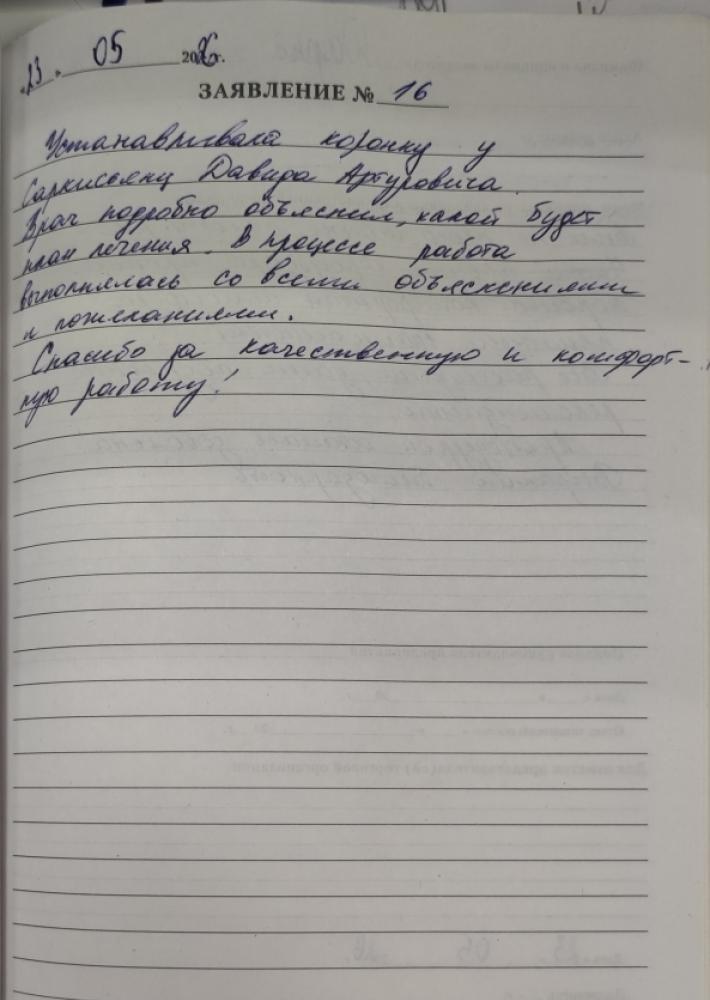 «23» 05 2026г.
ЗАЯВЛЕНИЕ № 16
Устанавливала коронку у
Саркисьянц Давида Артуровича.
Врач подробно объяснил, какой будет
план лечения. В процессе работа
выполнялась со всеми объяснениями
и пожеланиями.
Спасибо за качественную и комфорт-
ную работу!